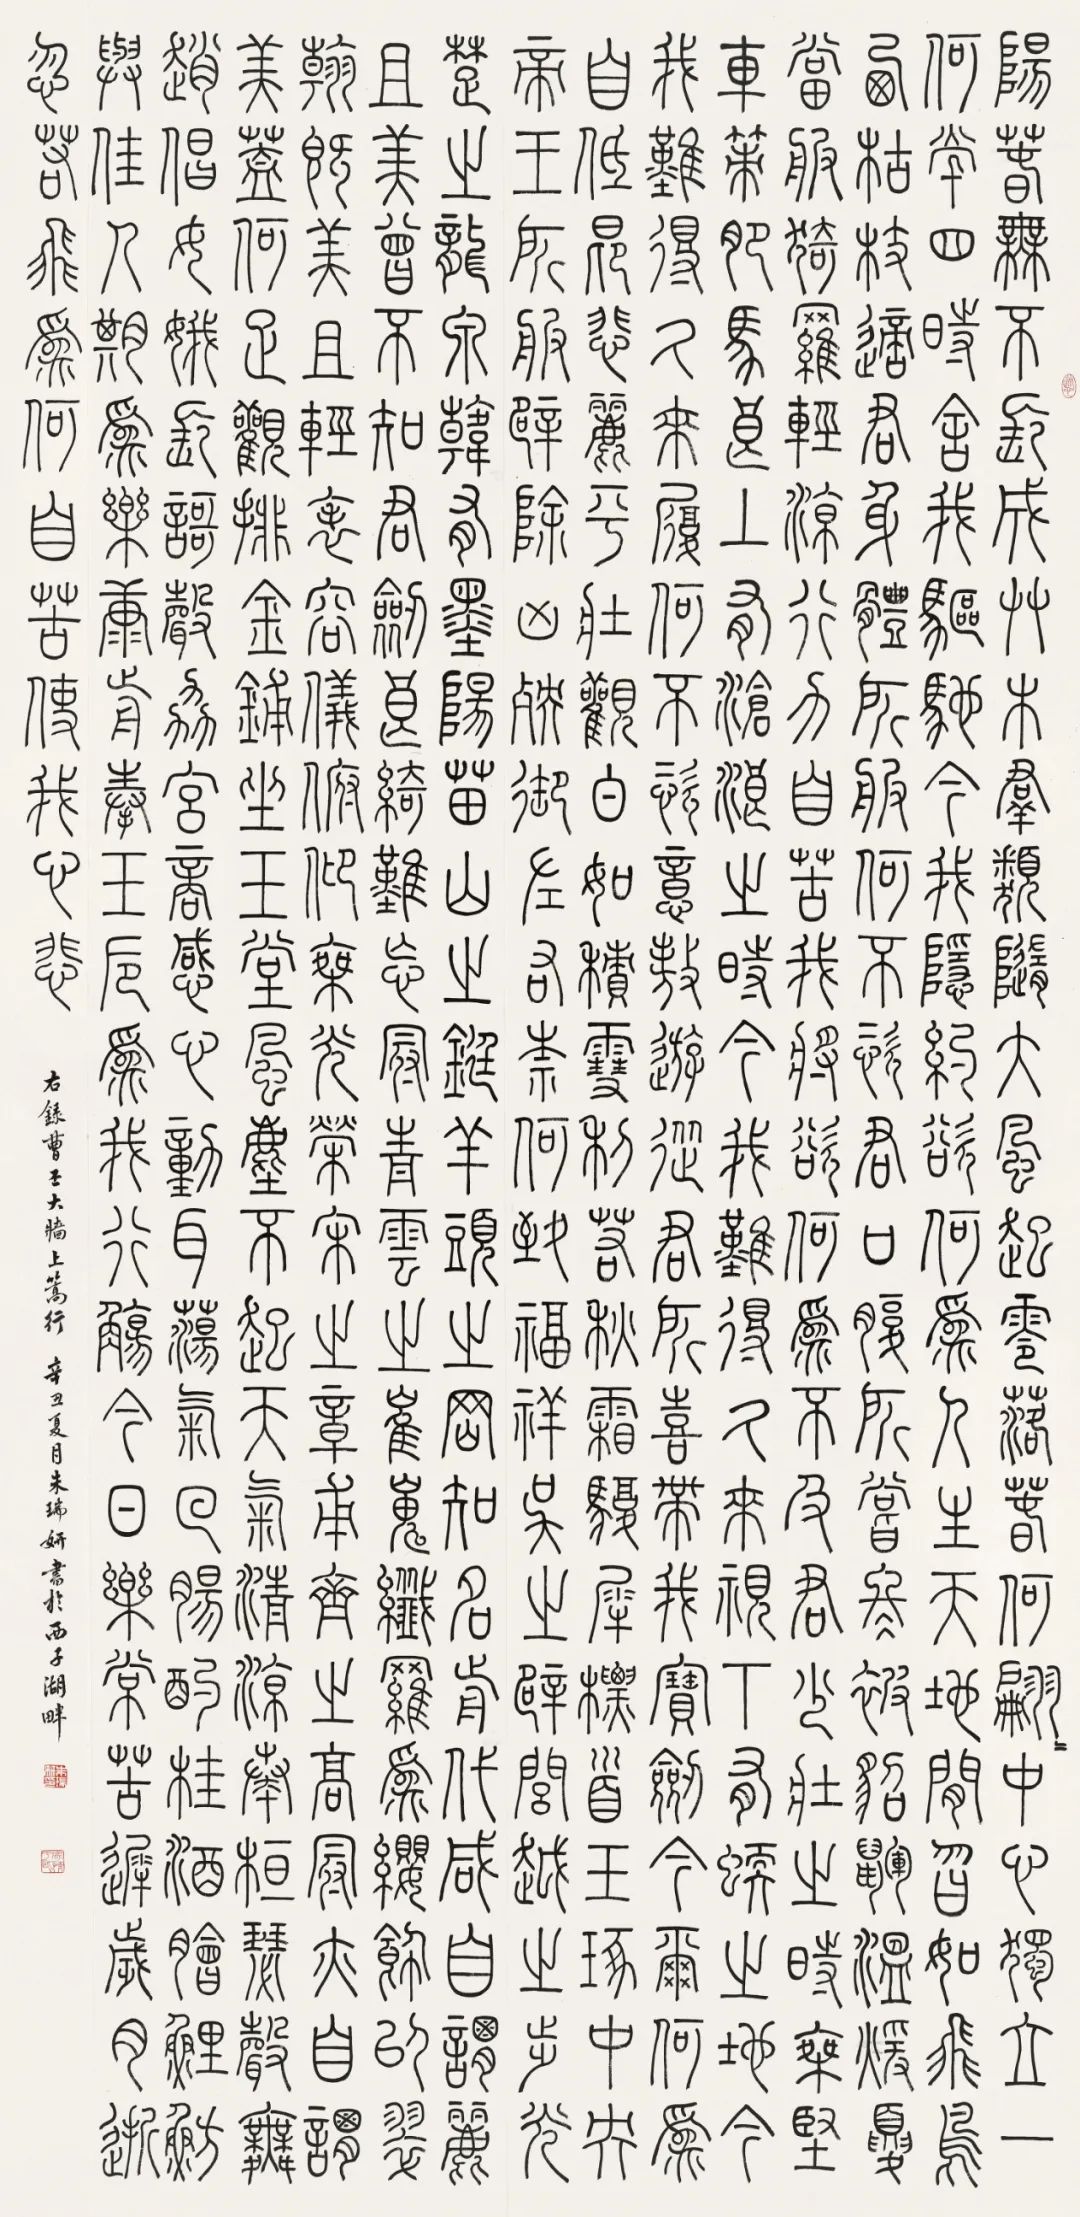 陽春無不長成艸木羣類隨大風起零落若何翩〻中心獨立一
何煢四時舍我驅馳今我隱約欲何為人生天地間忽如飛鳥
西枯枝適君身體所服何不恣君口腹所嘗冬被貂鼲溫煖夏
當服綺羅輕涼行力自苦我將欲何為不及君少壯之時乘堅
車策肥馬良上有滄浪之時今我難得久來視下有蠕之地今
我難得久來履何不恣意敖遊從君所喜帶我寶劍今爾何為
自低昂悲麗平壯觀白如積雪利若秋霜駁犀標首玉琢中央
帝王所服辟除凶殃御左右柰何致福祥吳之辟閭越之步光
楚之龍泉韓有墨陽苗山之鋌羊頭之岡知名前代咸自謂麗
且美曾不知君劍良綺難忘冠青雲之崔嵬纖羅為纓飾以翠
翰既美且輕表容儀俯仰垂光榮宋之章甫齊之高冠亦自謂
美蓋何足觀排金鋪坐玉堂風塵不起天氣清涼奏桓瑟聲舞
趙倡女娥長歌聲協宮商感心動耳蕩氣回腸酌桂酒膾鯉魴
與佳人期為樂康前奉玉卮為我行觴今日樂常苦遲歲月逝
忽若飛為何自苦使我心悲
右錄曹丕大牆上蒿行 辛丑夏月朱瑞妍書於西子湖畔